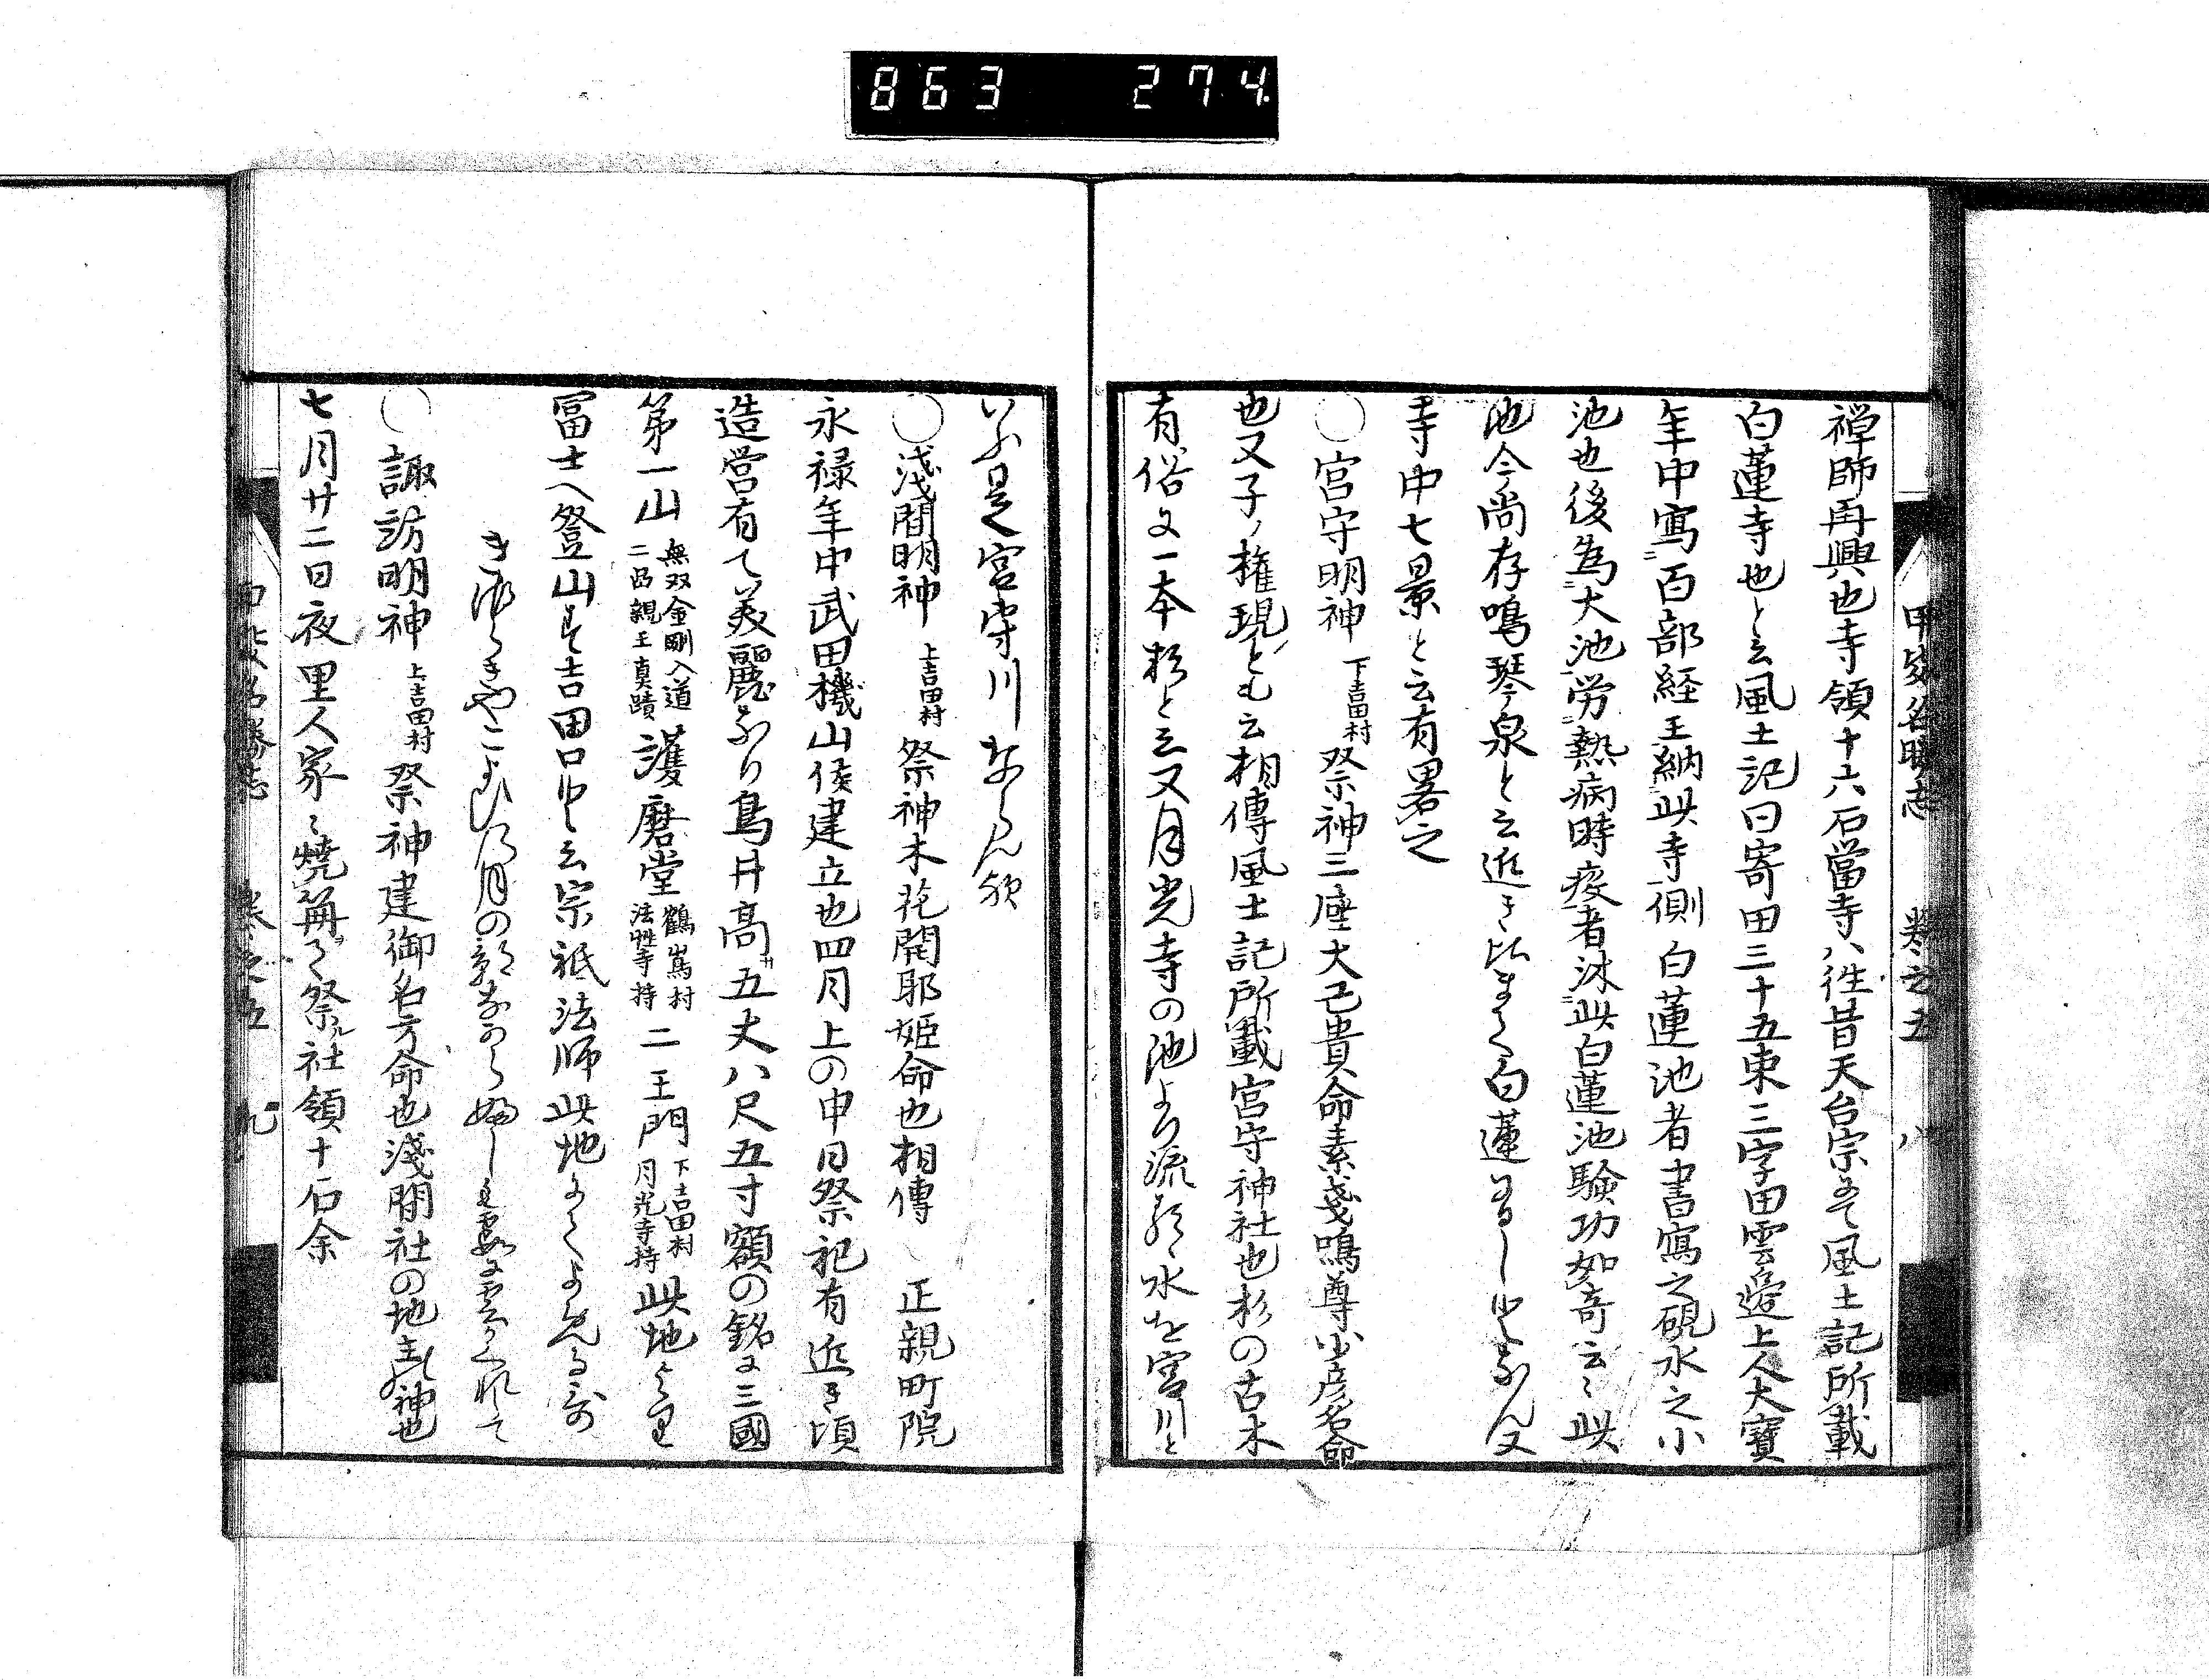 863 274
甲斐名勝志 巻之五 八
禅師再興也寺領十六石當寺ハ往昔天台宗にて風土記所載
白蓮寺也と云風土記曰寄田三十五束三字田雲愛上人大寶
年中寫百部経王納此寺側白蓮池者書寫之硯水之小
池也後為大池労熱病時疫者沐此白蓮池験功如奇云〻此
池今尚存鳴琴泉と云近き比まて白蓮有しとなん又
寺中七景と云有畧之
○宮守明神 下吉田村 祭神三座大己貴命素戔鳴尊少彦名命
也又子ノ権現とも云相傳風土記所載宮守神社也杉の古木
有俗に一本杉と云又月光寺の池より流るゝ水を宮川と
いふ是宮守川ならん歟
○浅間明神 上吉田村 祭神木花開耶姫命也相傳 正親町院
永禄年中武田機山侯建立也四月上の申日祭祀有近き頃
造営有て美麗なり鳥井高サ五丈八尺五寸額の銘に三國
第一山 無双金剛入道 二品親王真蹟 護磨堂 鶴嶌村 法性寺持 二王門 下吉田村 月光寺持 此地より
冨士へ登山す吉田口と云宗祇法師此地にてよめる哥
月の
諏訪明神 上吉田村 祭神建御名方命也淺間社の地主の神也
七月廿二日夜里人家〻焼篝て祭ル社領十石余
甲斐名勝志 巻之五 九